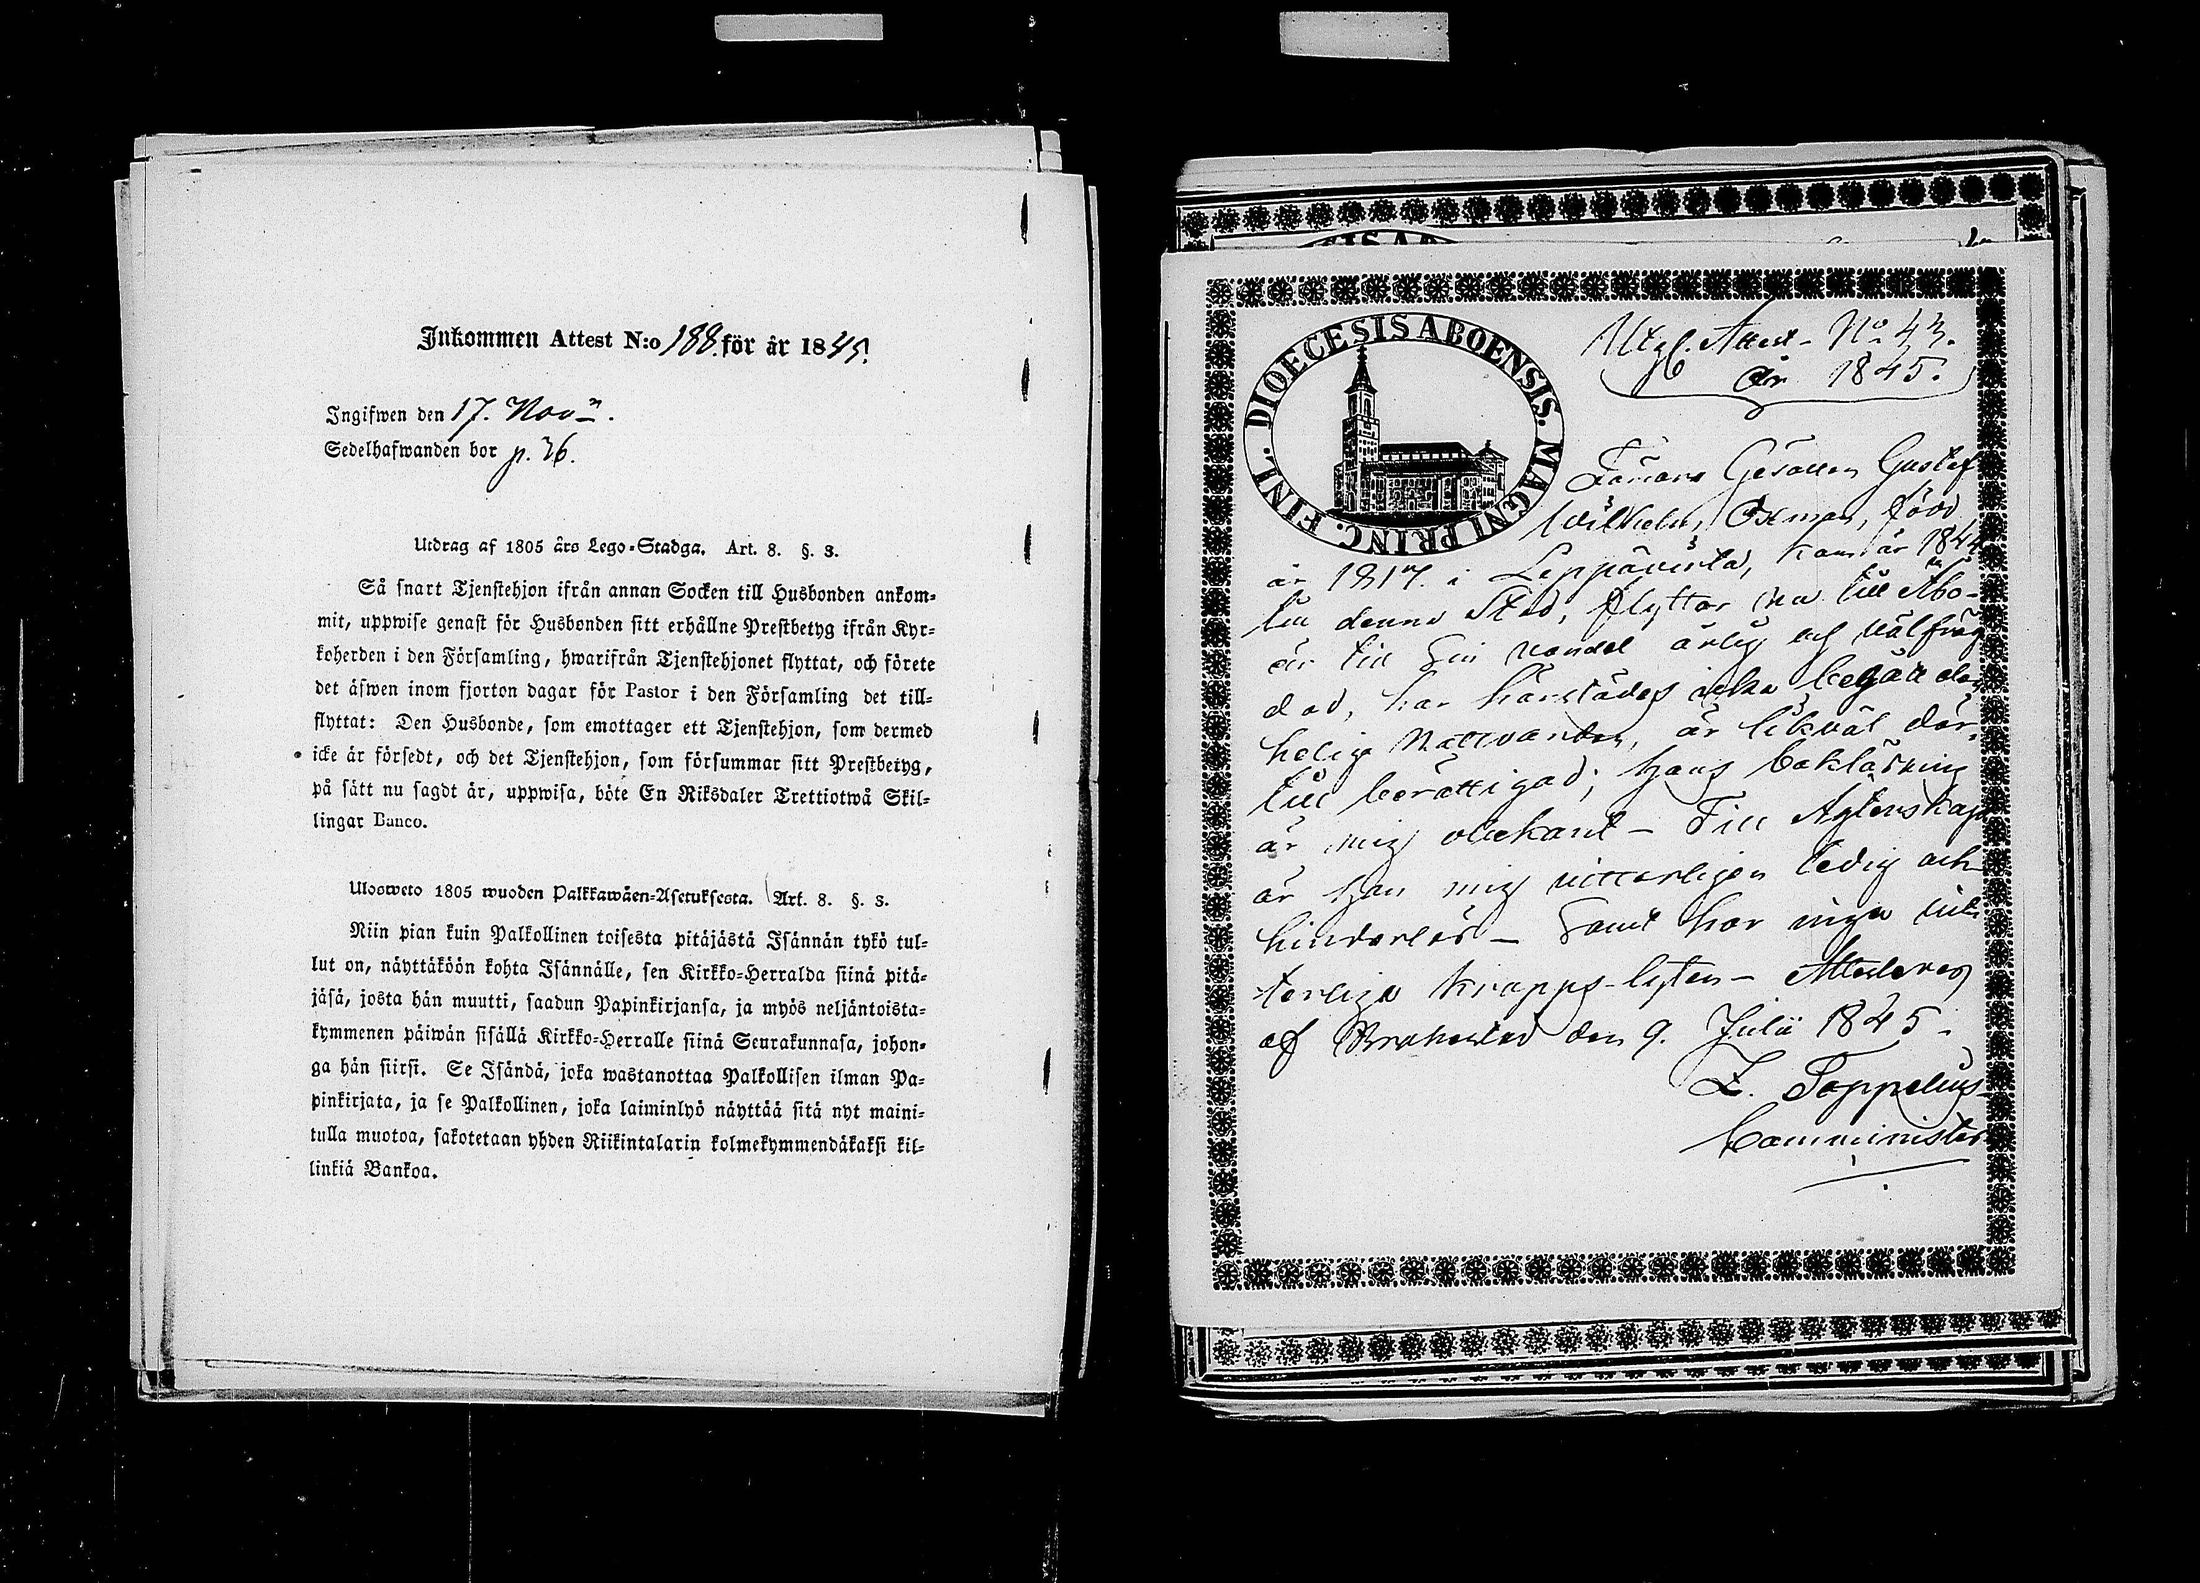 Inkommen Attest N:o 188. för år 1845.
Ingifwen den 17. Nov.
Sedelhafwanden bor p. 26.
Utdrag af 1805 års Lego-Stadga. Art. 8. §. 3.
Så snart Tjenstehjon ifrån annan Socken till Husbonden ankom-
mit, uppwise genast för Husbonden sitt erhållne Prestbetyg ifrån Kyr-
koherden i den Församling, hwarifrån Tjenstehjonet flyttat, och förete
det äfwen inom fjorton dagar för Pastor i den Församling det till-
flyttat: Den Husbonde, som emottager ett Tjenstehjon, som dermed
icke är försedt, och det Tjenstehjon, som försummar sitt Prestbetyg,
på sätt nu sagdt är, uppwisa, böte En Riksdaler Trettiotwå Skil-
lingar Banco.
Ulosweto 1805 wuoden Palkkawäen-Asetuksesta. Art. 8. §. 3.
Niin pian kuin Palkollinen toisesta pitäjästä Isännän tykö tul-
lut on, näyttäköön kohta Isännälle, sen Kirkko-Herralda siinä pitä-
jäsä, josta hän muutti, saadun Papinkirjansa, ja myös neljäntoista-
kymmenen päiwän sisällä Kirkko-Herralle siinä Seurakunnasa, johon-
ga hän siirsi. Se Isändä, joka wastanottaa Palkollisen ilman Pa-
pinkirjata, ja se Palkollinen, joka laiminlyö näyttää sitä nyt maini-
tulla muotoa, sakotetaan yhden Riikintalarin kolmekymmendäkaksi kil-
linkiä Bankoa.
DIOECESIS ABOENSIS. MAGNI PRINC. FINL.
Utgl. Attest N:o 43.
År 1845.
Gesällen Gustaf
Wilhelm Öxman, född
år 1817. i Leppävirta, kom år 1844
till denna Stad, flyttar nu till Åbo-
är till sin vandel ärlig och välfräg
dad, har härstädes icke begått den
heliga Nattvarden, är likväl där-
till berättigad; hans boklärning
är mig obekant - Till Äktenskap
är han mig vitterligen ledig och
hinderlös - samt har inga vit
terliga kropps-lyten - Attesteras
af Brahestad den 9. Julii 1845.
Z. Toppelius
Comminister